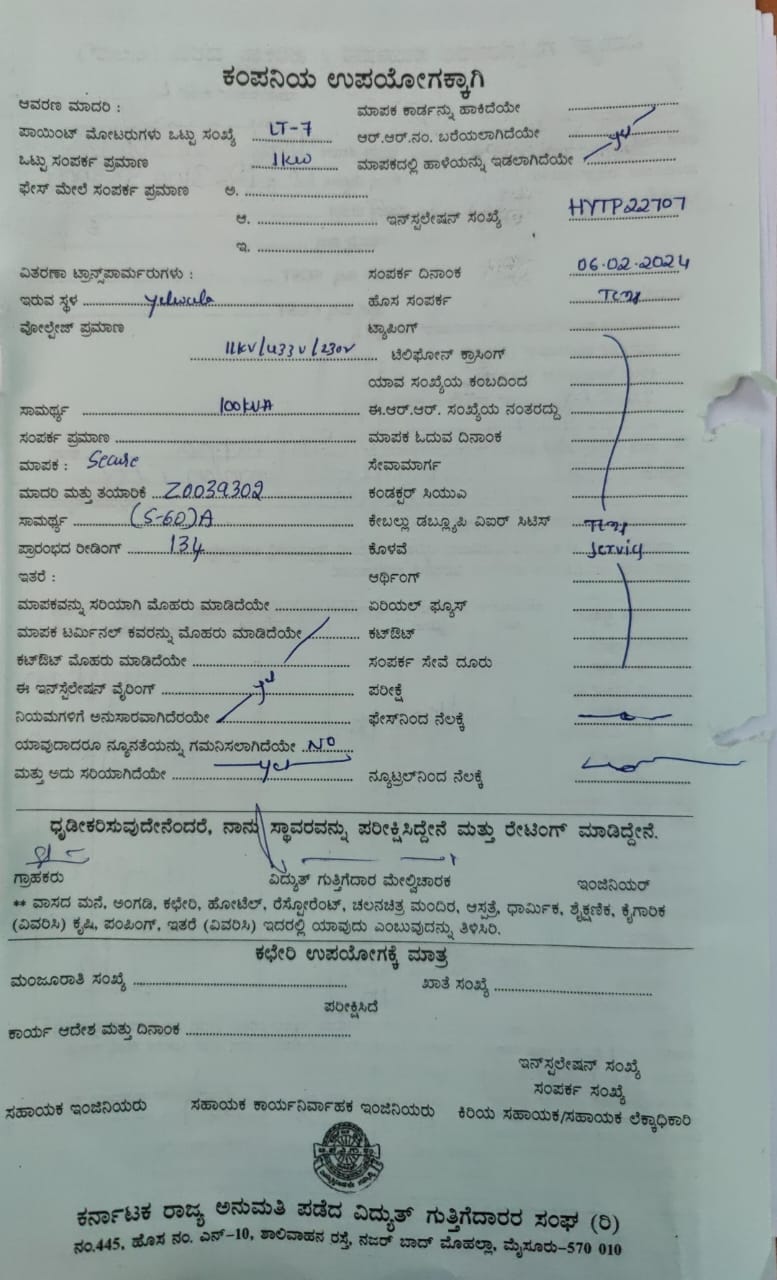 ಕಂಪನಿಯ ಉಪಯೋಗಕ್ಕಾಗಿ
ಆವರಣ ಮಾದರಿ : ಮಾಪಕ ಕಾರ್ಡನ್ನು ಹಾಕಿದೆಯೇ
ಪಾಯಿಂಟ್ ಮೋಟರುಗಳು ಒಟ್ಟು ಸಂಖ್ಯೆ LT-7 ಆರ್.ಆರ್.ನಂ. ಬರೆಯಲಾಗಿದೆಯೇ
ಒಟ್ಟು ಸಂಪರ್ಕ ಪ್ರಮಾಣ 1kw ಮಾಪಕದಲ್ಲಿ ಹಾಳೆಯನ್ನು ಇಡಲಾಗಿದೆಯೇ
ಫೇಸ್ ಮೇಲೆ ಸಂಪರ್ಕ ಪ್ರಮಾಣ ಅ.
ಆ. ಇನ್‌ಸ್ಟಲೇಷನ್ ಸಂಖ್ಯೆ HYTP22707
ಇ.
ವಿತರಣಾ ಟ್ರಾನ್ಸ್‌ಪಾರ್ಮರುಗಳು : ಸಂಪರ್ಕ ದಿನಾಂಕ 06.02.2024
ಇರುವ ಸ್ಥಳ Yelwala ಹೊಸ ಸಂಪರ್ಕ Tcmy
ವೋಲ್ಟೇಜ್ ಪ್ರಮಾಣ ಟ್ಯಾಪಿಂಗ್
11KV/433V/230V ಟೆಲಿಫೋನ್ ಕ್ರಾಸಿಂಗ್
ಯಾವ ಸಂಖ್ಯೆಯ ಕಂಬದಿಂದ
ಸಾಮರ್ಥ್ಯ 100KVA ಈ.ಆರ್.ಆರ್. ಸಂಖ್ಯೆಯ ನಂತರದ್ದು
ಸಂಪರ್ಕ ಪ್ರಮಾಣ ಮಾಪಕ ಓದುವ ದಿನಾಂಕ
ಮಾಪಕ : Secure ಸೇವಾಮಾರ್ಗ
ಮಾದರಿ ಮತ್ತು ತಯಾರಿಕೆ Z0039302 ಕಂಡಕ್ಟರ್ ಸಿಯುಎ
ಸಾಮರ್ಥ್ಯ (5-60)A ಕೇಬಲ್ಲು ಡಬ್ಲ್ಯೂಪಿ ಎಐರ್ ಸಿಟಿಸ್ Tcmy
ಪ್ರಾರಂಭದ ರೀಡಿಂಗ್ 134 ಕೊಳವೆ Servicy
ಇತರೆ : ಆರ್ಥಿಂಗ್
ಮಾಪಕವನ್ನು ಸರಿಯಾಗಿ ಮೊಹರು ಮಾಡಿದೆಯೇ ಏರಿಯಲ್ ಫ್ಯೂಸ್
ಮಾಪಕ ಟರ್ಮಿನಲ್ ಕವರನ್ನು ಮೊಹರು ಮಾಡಿದೆಯೇ ಕಟ್‌ಔಟ್
ಕಟ್‌ಔಟ್ ಮೊಹರು ಮಾಡಿದೆಯೇ ಸಂಪರ್ಕ ಸೇವೆ ದೂರು
ಈ ಇನ್‌ಸ್ಟೆಲೇಷನ್ ವೈರಿಂಗ್ ಪರೀಕ್ಷೆ
ನಿಯಮಗಳಿಗೆ ಅನುಸಾರವಾಗಿದೆರಯೇ ಫೇಸ್‌ನಿಂದ ನೆಲಕ್ಕೆ
ಯಾವುದಾದರೂ ನ್ಯೂನತೆಯನ್ನು ಗಮನಿಸಲಾಗಿದೆಯೇ NO
ಮತ್ತು ಅದು ಸರಿಯಾಗಿದೆಯೇ yes ನ್ಯೂಟ್ರಲ್‌ನಿಂದ ನೆಲಕ್ಕೆ
ಧೃಡೀಕರಿಸುವುದೇನೆಂದರೆ, ನಾನು ಸ್ಥಾವರವನ್ನು ಪರೀಕ್ಷಿಸಿದ್ದೇನೆ ಮತ್ತು ರೇಟಿಂಗ್ ಮಾಡಿದ್ದೇನೆ.
ಗ್ರಾಹಕರು ವಿದ್ಯುತ್ ಗುತ್ತಿಗೆದಾರ ಮೇಲ್ವಿಚಾರಕ ಇಂಜಿನಿಯರ್
** ವಾಸದ ಮನೆ, ಅಂಗಡಿ, ಕಛೇರಿ, ಹೋಟೆಲ್, ರೆಸ್ಟೋರೆಂಟ್, ಚಲನಚಿತ್ರ ಮಂದಿರ, ಆಸ್ಪತ್ರೆ, ಧಾರ್ಮಿಕ, ಶೈಕ್ಷಣಿಕ, ಕೈಗಾರಿಕ
(ವಿವರಿಸಿ) ಕೃಷಿ, ಪಂಪಿಂಗ್, ಇತರೆ (ವಿವರಿಸಿ) ಇದರಲ್ಲಿ ಯಾವುದು ಎಂಬುವುದನ್ನು ತಿಳಿಸಿರಿ.
ಕಛೇರಿ ಉಪಯೋಗಕ್ಕೆ ಮಾತ್ರ
ಮಂಜೂರಾತಿ ಸಂಖ್ಯೆ ಖಾತೆ ಸಂಖ್ಯೆ
ಪರೀಕ್ಷಿಸಿದೆ
ಕಾರ್ಯ ಆದೇಶ ಮತ್ತು ದಿನಾಂಕ
ಇನ್‌ಸ್ಟಲೇಷನ್ ಸಂಖ್ಯೆ
ಸಂಪರ್ಕ ಸಂಖ್ಯೆ
ಸಹಾಯಕ ಇಂಜಿನಿಯರು ಸಹಾಯಕ ಕಾರ್ಯನಿರ್ವಾಹಕ ಇಂಜಿನಿಯರು ಕಿರಿಯ ಸಹಾಯಕ/ಸಹಾಯಕ ಲೆಕ್ಕಾಧಿಕಾರಿ
ಕರ್ನಾಟಕ ರಾಜ್ಯ ಅನುಮತಿ ಪಡೆದ ವಿದ್ಯುತ್ ಗುತ್ತಿಗೆದಾರರ ಸಂಘ (ರಿ)
ನಂ.445, ಹೊಸ ನಂ. ಎನ್-10, ಶಾಲಿವಾಹನ ರಸ್ತೆ, ನಜರ್ ಬಾದ್ ಮೊಹಲ್ಲಾ, ಮೈಸೂರು-570 010